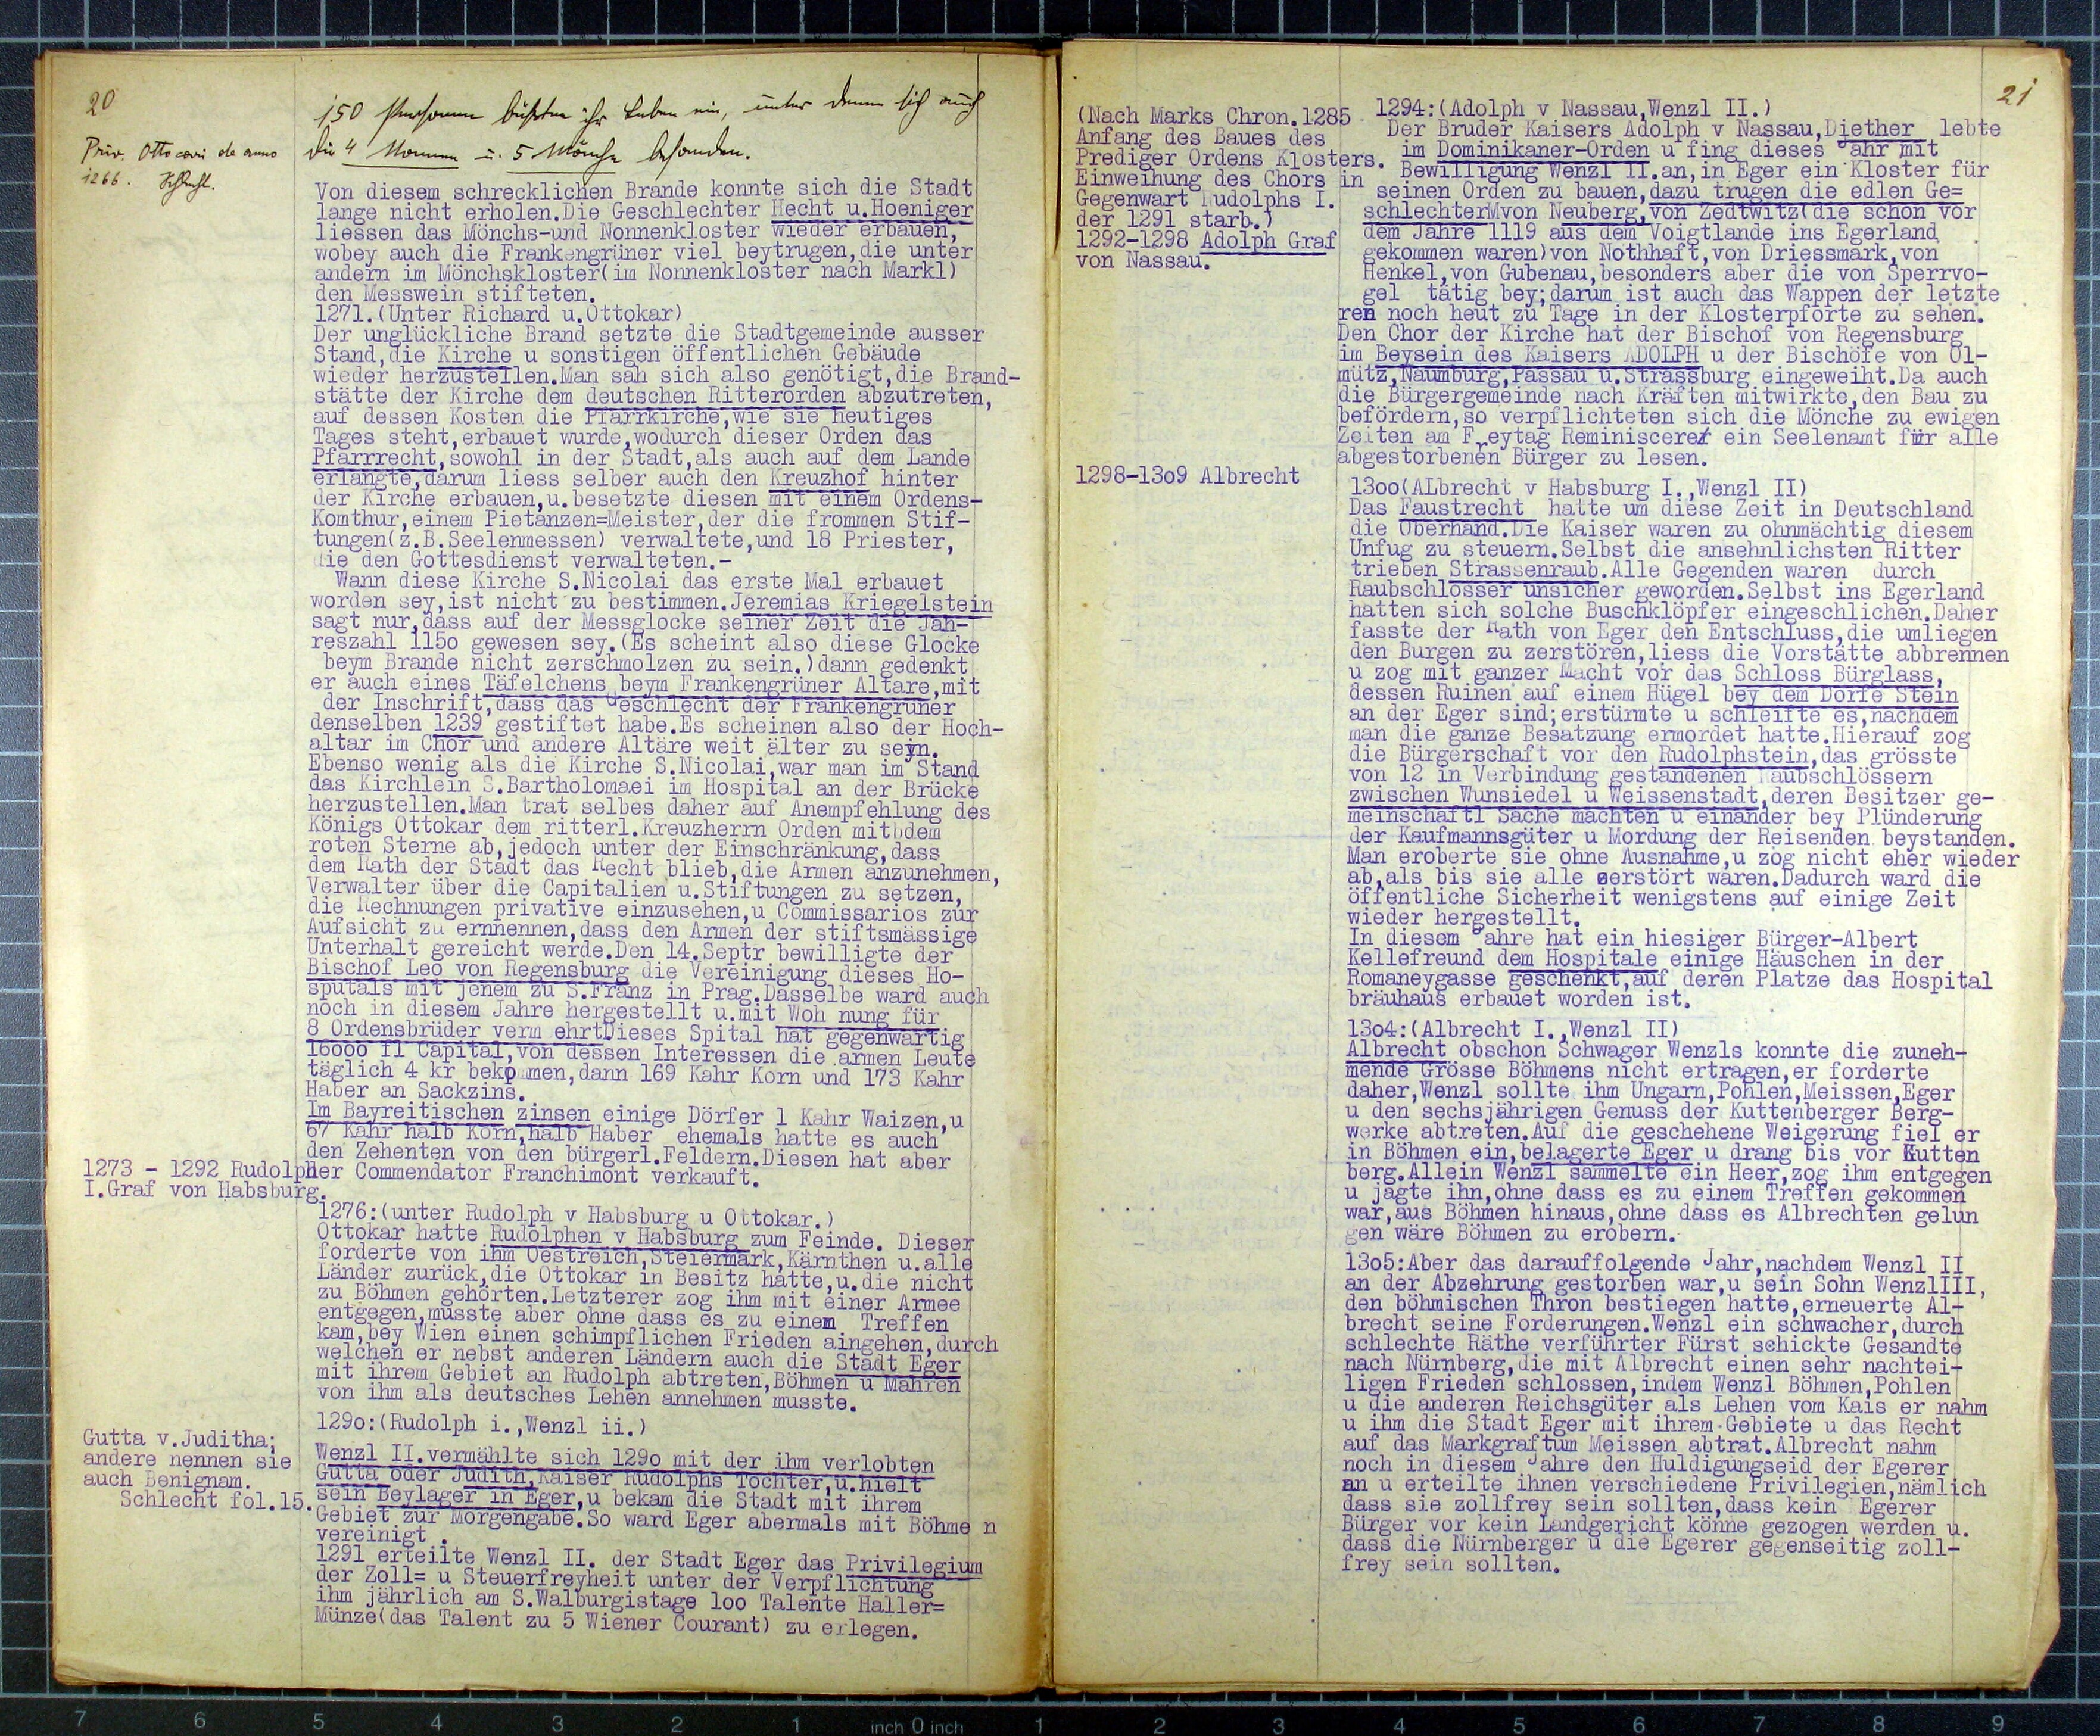 20
150 Personen büßten ihr Leben ein, unter denen sich auch
die 4 Nonnen u. 5 Mönche befanden.
Priv. Ottocari de anno
1266. Schlecht.
Von diesem schrecklichen Brande konnte sich die Stadt
lange nicht erholen.Die Geschlechter Hecht u.Hoeniger
liessen das Mönchs-und Nonnenkloster wieder erbauen,
wobey auch die Frankengrüner viel beytrugen,die unter
andern im Mönchskloster(im Nonnenkloster nach Markl)
den Messwein stifteten.
1271.(Unter Richard u.Ottokar)
Der unglückliche Brand setzte die Stadtgemeinde ausser
Stand,die Kirche u sonstigen öffentlichen Gebäude
wieder herzustellen.Man sah sich also genötigt,die Brand-
stätte der Kirche dem deutschen Ritterorden abzutreten,
auf dessen Kosten die Pfarrkirche,wie sie heutiges
Tages steht,erbauet wurde,wodurch dieser Orden das
Pfarrrecht,sowohl in der Stadt,als auch auf dem Lande
erlangte,darum liess selber auch den Kreuzhof hinter
der Kirche erbauen,u.besetzte diesen mit einem Ordens-
Komthur,einem Pietanzen=Meister,der die frommen Stif-
tungen(z.B.Seelenmessen) verwaltete,und 18 Priester,
die den Gottesdienst verwalteten.-
Wann diese Kirche S.Nicolai das erste Mal erbauet
worden sey,ist nicht zu bestimmen.Jeremias Kriegelstein
sagt nur,dass auf der Messglocke seiner Zeit die Jah-
reszahl 115o gewesen sey.(Es scheint also diese Glocke
beym Brande nicht zerschmolzen zu sein.)dann gedenkt
er auch eines Täfelchens beym Frankengrüner Altare,mit
der Inschrift,dass das Geschlecht der Frankengrüner
denselben 1239 gestiftet habe.Es scheinen also der Hoch-
altar im Chor und andere Altäre weit älter zu seyn.
Ebenso wenig als die Kirche S.Nicolai,war man im Stand
das Kirchlein S.Bartholomaei im Hospital an der Brücke
herzustellen.Man trat selbes daher auf Anempfehlung des
Königs Ottokar dem ritterl.Kreuzherrn Orden mitbdem
roten Sterne ab,jedoch unter der Einschränkung,dass
dem Rath der Stadt das Recht blieb,die Armen anzunehmen,
Verwalter über die Capitalien u.Stiftungen zu setzen,
die Rechnungen privative einzusehen,u Commissarios zur
Aufsicht zu ernnennen,dass den Armen der stiftsmässige
Unterhalt gereicht werde.Den 14.Septr bewilligte der
Bischof Leo von Regensburg die Vereinigung dieses Ho-
sputals mit jenem zu S.Franz in Prag.Dasselbe ward auch
noch in diesem Jahre hergestellt u.mit Woh nung für
8 Ordensbrüder verm ehrtDieses Spital hat gegenwärtig
16ooo fl Capital,von dessen Interessen die armen Leute
täglich 4 kr bekommen,dann 169 Kahr Korn und 173 Kahr
Haber an Sackzins.
Im Bayreitischen zinsen einige Dörfer 1 Kahr Waizen,u
67 Kahr halb Korn,halb Haber ehemals hatte es auch
den Zehenten von den bürgerl.Feldern.Diesen hat aber
der Commendator Franchimont verkauft.
1273 - 1292 Rudolph
I.Graf von Habsburg.
1276:(unter Rudolph v Habsburg u Ottokar.)
Ottokar hatte Rudolphen v Habsburg zum Feinde. Dieser
forderte von ihm Oestreich,Steiermark,Kärnthen u.alle
Länder zurück,die Ottokar in Besitz hatte,u.die nicht
zu Böhmen gehörten.Letzterer zog ihm mit einer Armee
entgegen,musste aber ohne dass es zu einem Treffen
kam,bey Wien einen schimpflichen Frieden aingehen,durch
welchen er nebst anderen Ländern auch die Stadt Eger
mit ihrem Gebiet an Rudolph abtreten,Böhmen u Mähren
von ihm als deutsches Lehen annehmen musste.
129o:(Rudolph i.,Wenzl ii.)
Gutta v.Juditha;
andere nennen sie
auch Benignam.
Schlecht fol.15.
Wenzl II.vermählte sich 129o mit der ihm verlobten
Gutta oder Judith,Kaiser Rudolphs Tochter,u.hielt
sein Beylager in Eger,u bekam die Stadt mit ihrem
Gebiet zur Morgengabe.So ward Eger abermals mit Böhme n
vereinigt .
1291 erteilte Wenzl II. der Stadt Eger das Privilegium
der Zoll= u Steuerfreyheit unter der Verpflichtung
ihm jährlich am S.Walburgistage loo Talente Haller=
Münze(das Talent zu 5 Wiener Courant) zu erlegen.
21
(Nach Marks Chron.1285
Anfang des Baues des
Prediger Ordens Klosters.
Einweihung des Chors in
Gegenwart Rudolphs I.
der 1291 starb.)
1292-1298 Adolph Graf
von Nassau.
1294:(Adolph v Nassau,Wenzl II.)
Der Bruder Kaisers Adolph v Nassau,Diether lebte
im Dominikaner-Orden u fing dieses Jahr mit
Bewilligung Wenzl II.an,in Eger ein Kloster für
seinen Orden zu bauen,dazu trugen die edlen Ge=
schlechterMvon Neuberg,von Zedtwitz(die schon vor
dem Jahre 1119 aus dem Voigtlande ins Egerland
gekommen waren)von Nothhaft,von Driessmark,von
Henkel,von Gubenau,besonders aber die von Sperrvo-
gel tätig bey;darum ist auch das Wappen der letzte
ren noch heut zu Tage in der Klosterpforte zu sehen.
Den Chor der Kirche hat der Bischof von Regensburg
im Beysein des Kaisers ADOLPH u der Bischöfe von Ol-
mütz,Naumburg,Passau u.Strassburg eingeweiht.Da auch
die Bürgergemeinde nach Kräften mitwirkte,den Bau zu
befördern,so verpflichteten sich die Mönche zu ewigen
Zeiten am Freytag Reminiscere ein Seelenamt für alle
abgestorbenen Bürger zu lesen.
1298-13o9 Albrecht
13oo(ALbrecht v Habsburg I.,Wenzl II)
Das Faustrecht hatte um diese Zeit in Deutschland
die Oberhand.Die Kaiser waren zu ohnmächtig diesem
Unfug zu steuern.Selbst die ansehnlichsten Ritter
trieben Strassenraub.Alle Gegenden waren durch
Raubschlösser unsicher geworden.Selbst ins Egerland
hatten sich solche Buschklöpfer eingeschlichen.Daher
fasste der Rath von Eger den Entschluss,die umliegen
den Burgen zu zerstören,liess die Vorstätte abbrennen
u zog mit ganzer Macht vor das Schloss Bürglass,
dessen Ruinen auf einem Hügel bey dem Dorfe Stein
an der Eger sind;erstürmte u schleifte es,nachdem
man die ganze Besatzung ermordet hatte.Hierauf zog
die Bürgerschaft vor den Rudolphstein,das grösste
von 12 in Verbindung gestandenen Raubschlössern
zwischen Wunsiedel u Weissenstadt,deren Besitzer ge-
meinschaftl Sache machten u einander bey Plünderung
der Kaufmannsgüter u Mordung der Reisenden beystanden.
Man eroberte sie ohne Ausnahme,u zog nicht eher wieder
ab,als bis sie alle zerstört waren.Dadurch ward die
öffentliche Sicherheit wenigstens auf einige Zeit
wieder hergestellt.
In diesem Jahre hat ein hiesiger Bürger-Albert
Kellefreund dem Hospitale einige Häuschen in der
Romaneygasse geschenkt,auf deren Platze das Hospital
bräuhaus erbauet worden ist.
13o4:(Albrecht I.,Wenzl II)
Albrecht obschon Schwager Wenzls konnte die zuneh-
mende Grösse Böhmens nicht ertragen,er forderte
daher,Wenzl sollte ihm Ungarn,Pohlen,Meissen,Eger
u den sechsjährigen Genuss der Kuttenberger Berg-
werke abtreten.Auf die geschehene Weigerung fiel er
in Böhmen ein,belagerte Eger u drang bis vor Kutten
berg.Allein Wenzl sammelte ein Heer,zog ihm entgegen
u jagte ihn,ohne dass es zu einem Treffen gekommen
war,aus Böhmen hinaus,ohne dass es Albrechten gelun
gen wäre Böhmen zu erobern.
13o5:Aber das darauffolgende Jahr,nachdem Wenzl II
an der Abzehrung gestorben war,u sein Sohn WenzlIII,
den böhmischen Thron bestiegen hatte,erneuerte Al-
brecht seine Forderungen.Wenzl ein schwacher,durch
schlechte Räthe verführter Fürst schickte Gesandte
nach Nürnberg,die mit Albrecht einen sehr nachtei-
ligen Frieden schlossen,indem Wenzl Böhmen,Pohlen
u die anderen Reichsgüter als Lehen vom Kais er nahm
u ihm die Stadt Eger mit ihrem Gebiete u das Recht
auf das Markgraftum Meissen abtrat.Albrecht nahm
noch in diesem Jahre den Huldigungseid der Egerer
an u erteilte ihnen verschiedene Privilegien,nämlich
dass sie zollfrey sein sollten,dass kein Egerer
Bürger vor kein Landgericht könne gezogen werden u.
dass die Nürnberger u die Egerer gegenseitig zoll-
frey sein sollten.
7 6 5 4 3 2 1 inch 0 inch 1 2 3 4 5 6 7 8 9